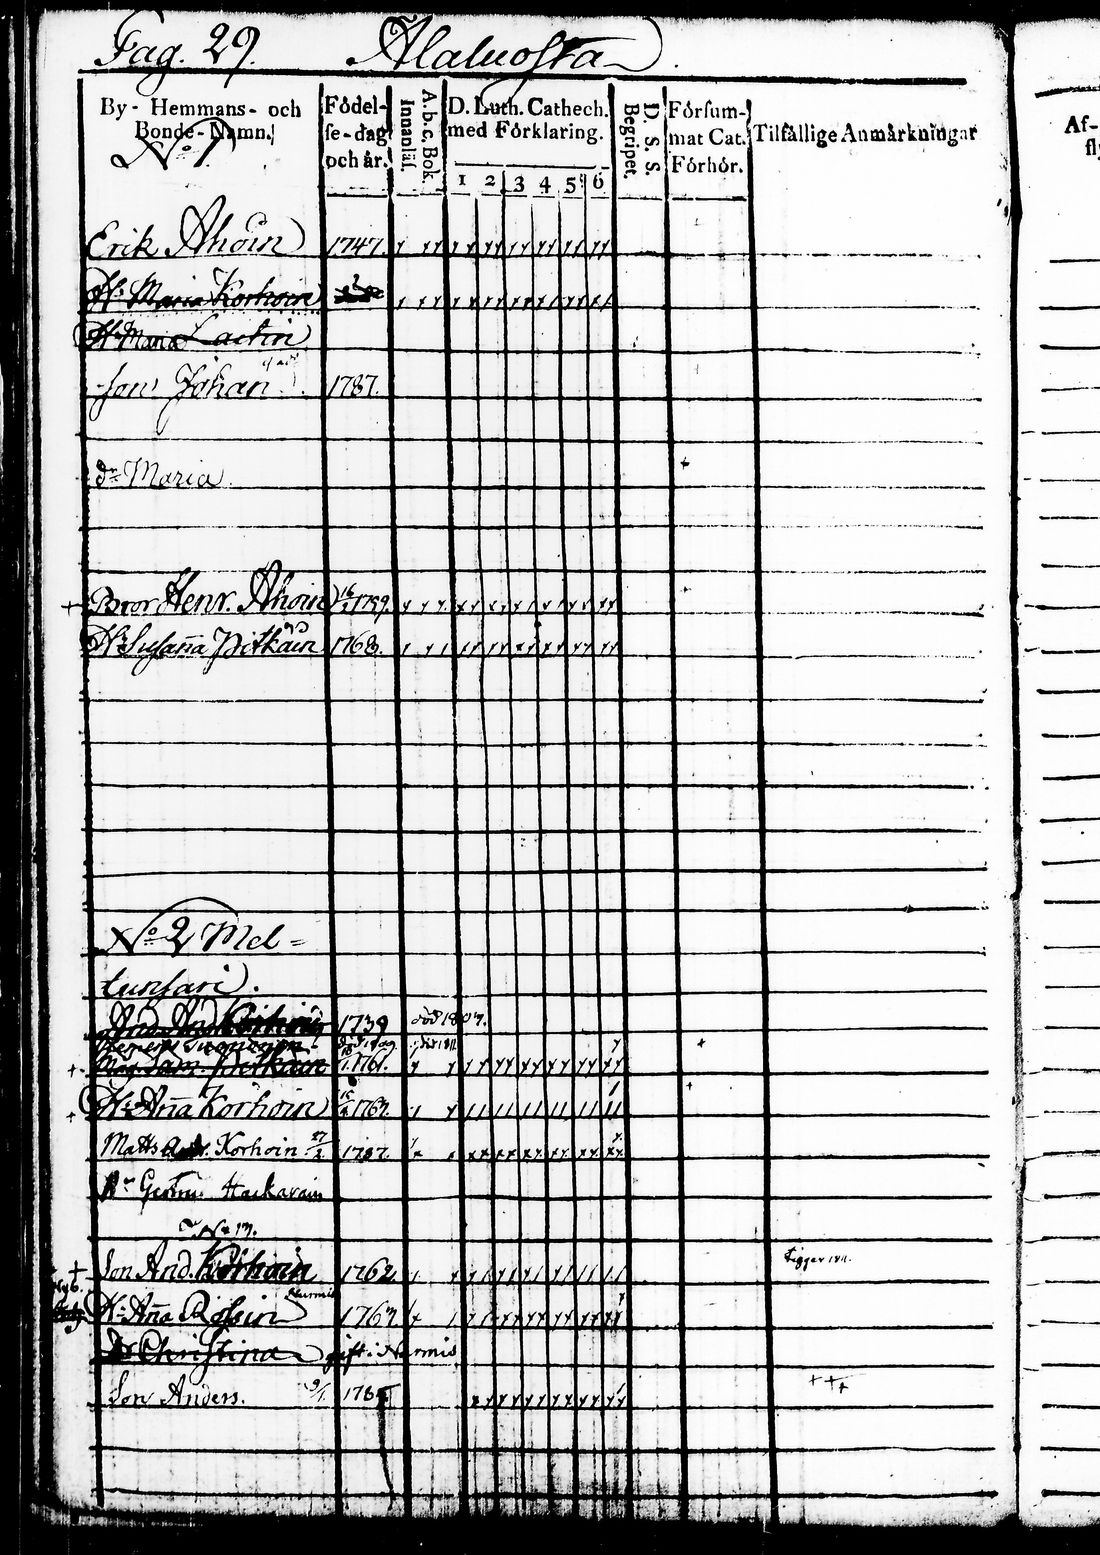 Pag. 29. Alaluosta
By- Hemmans- och Bonde-Namn.
Födel-se-dag och år.
Innanläs.
A.b.c. Bok.
D. Luth. Cathech. med Förklaring.
1 2 3 4 5 6
D. S. S. Begripet.
Försum-mat Cat. Förhör.
Tilfällige Anmärkningar
Af-
No 1
Erik Ahoin 1747.
Hu Maria Korhoin
Hu Maria Lactin
Son Johan 1787.
dr Maria
Bror Henr. Ahoin 1759.
Hu Susanna Pitkäin 1768.
No 2 Mel-
tunsari.
1739 död 1807.
Måg Sam. Pitkäin 1761.
Hu Anna Korhoin 1763.
Matts Korhoin 27/2 1787.
Hackarain
No 13.
Son And. Korhoin 1762 Tigger 1811.
Nurmis
Hu Anna Rossin 1763
Dr Christina gift i Nurmis
Son Anders.